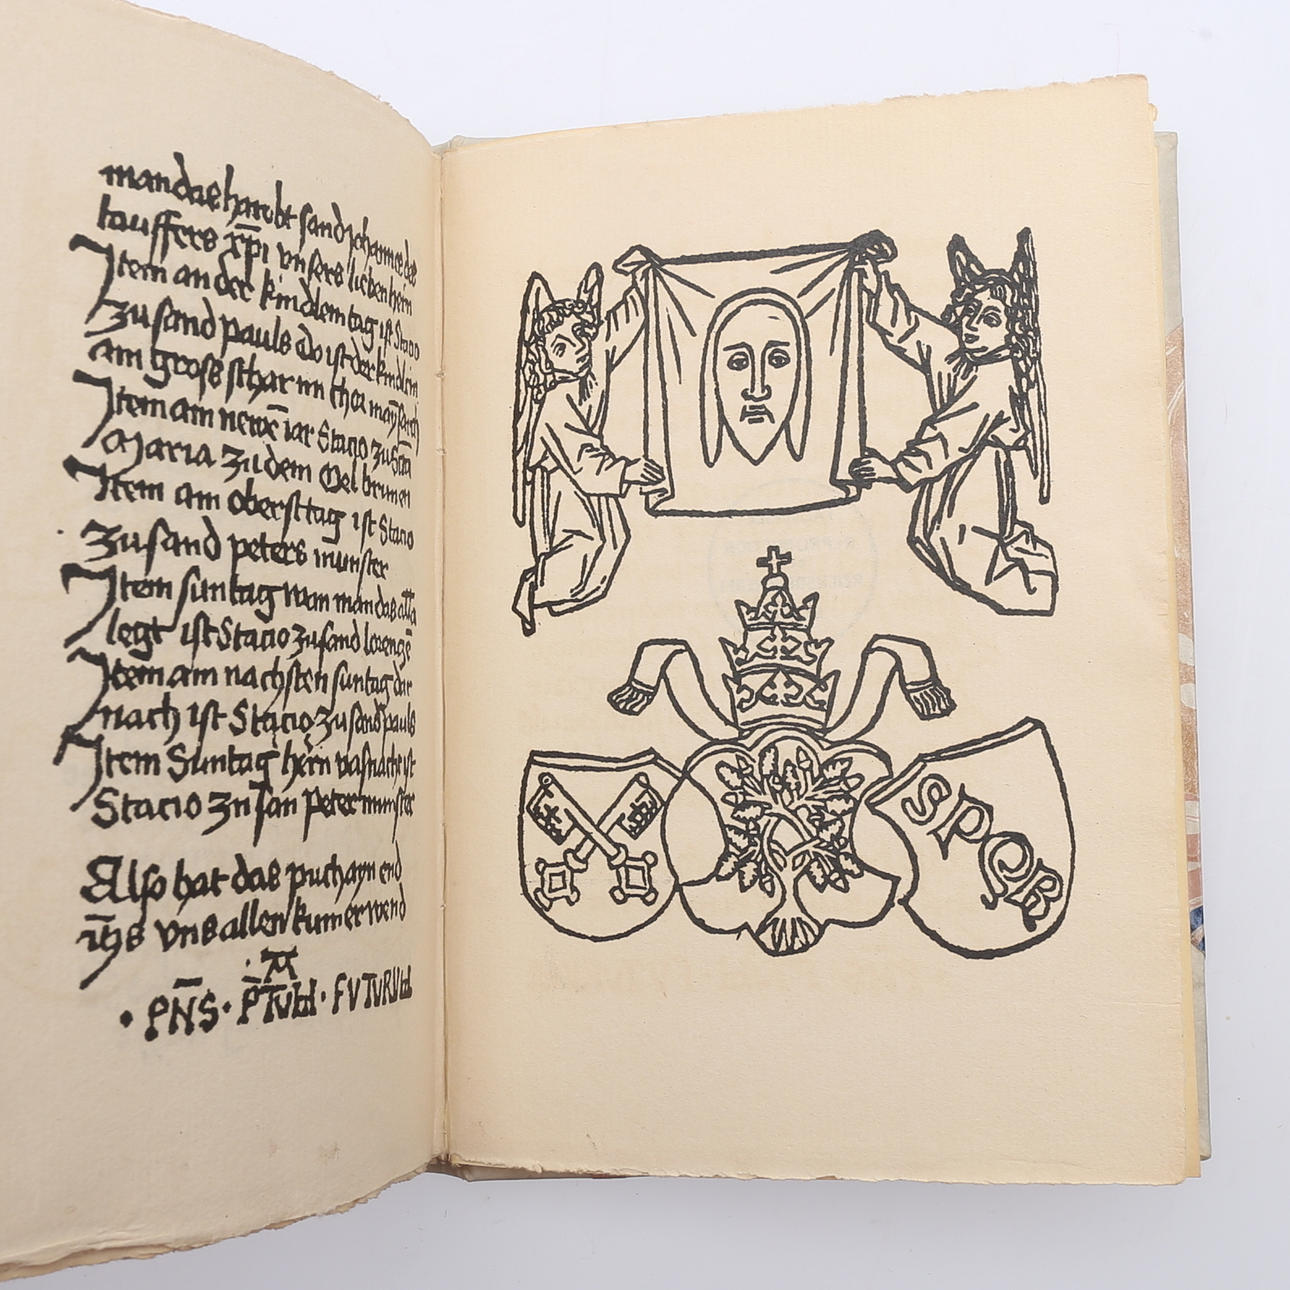 man das haubt sand Johannes des
tauffers xp̄i vnsers lieben hern
Item an der kindlem tag ist Stacio
zu sand pauls do ist der kindlein
am gross schar im
Item am newē iar Stacio zu Scā
Maria zu dem Oel brunen
Item am obersttag ist Stacio
zu sand peters munster
Item suntag wan man das alla
legt ist Stacio zu sand lorenzē
Item am nachsten suntag dar
nach ist Stacio zu sand pauls
Item Suntag hern vasnacht ist
Stacio zu san Peter munster
Also hat das puch ayn end
ih̄s vns allen kumer wend
SPQR